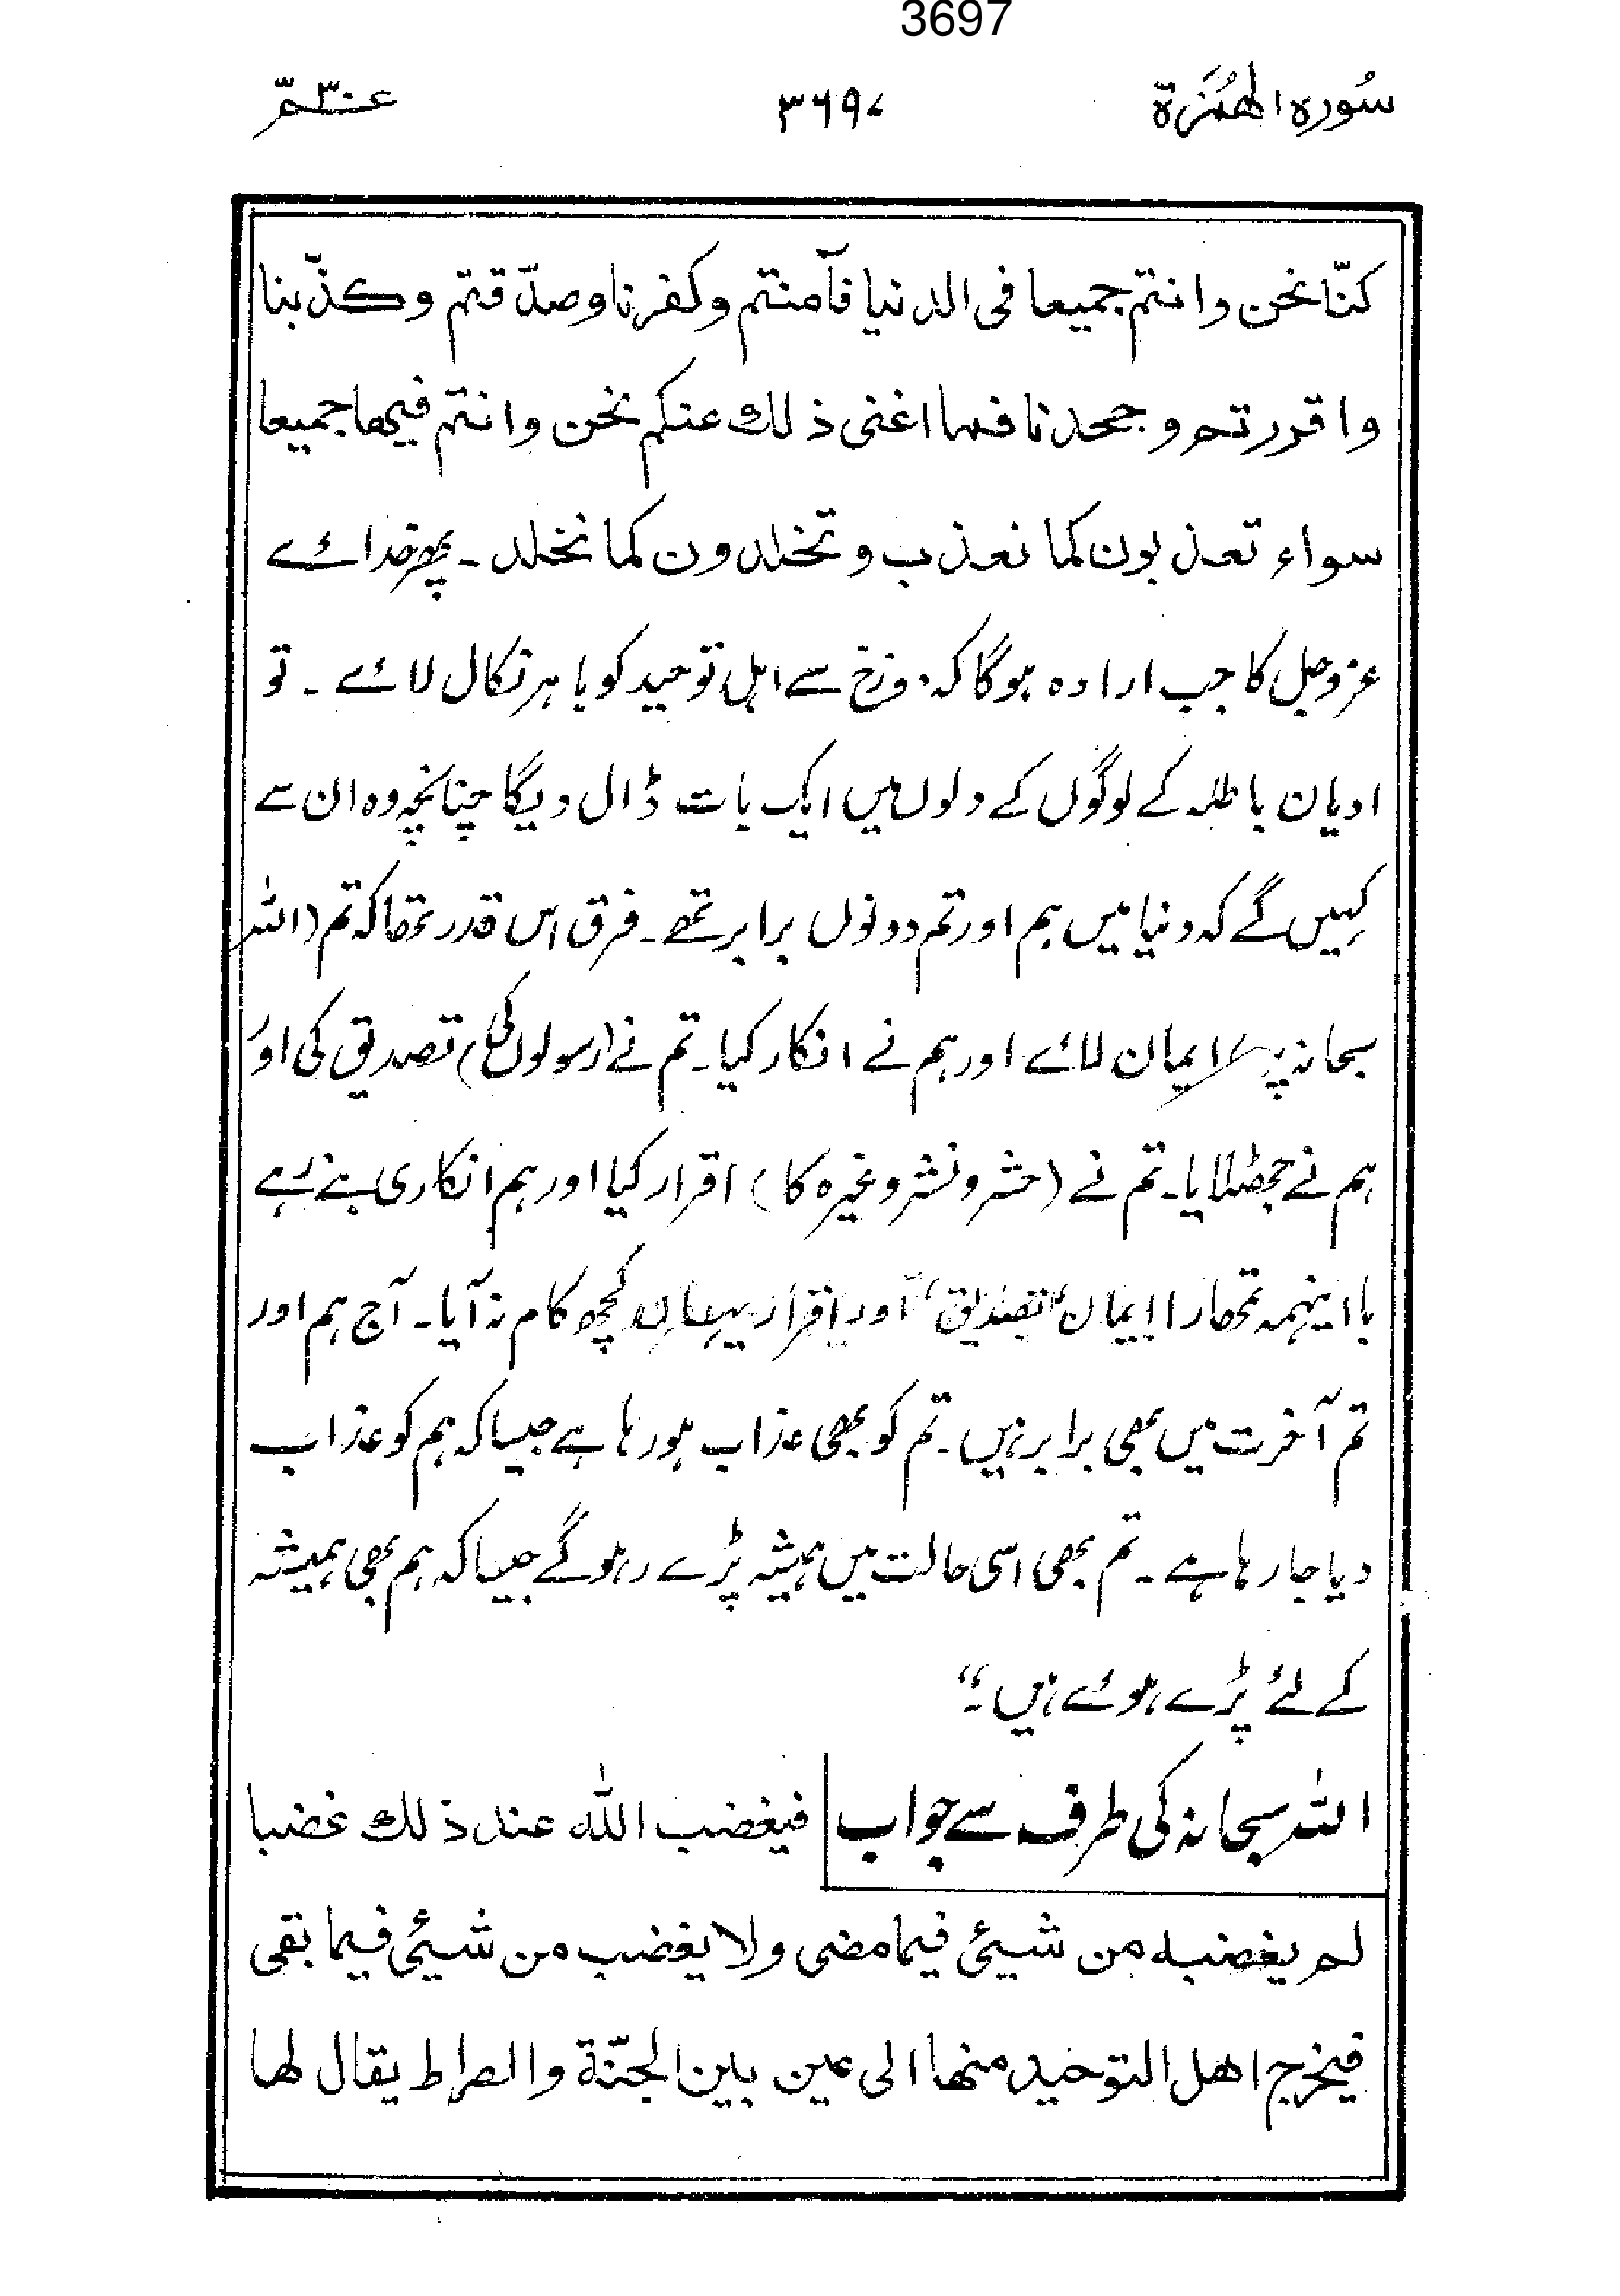 3697
سُورہ الھُمَزَة ۳۶۹۷ عۤـمّ ۳۰
کنّا نحن وانتم جمیعا فی الدنیا فآمنتم وکفرنا وصدّقتم وکذّبنا
واقررتم وجحدنا فما اغنی ذلك عنکم نحن وانتم فیھا جمیعا
سواء تعذبون کما نعذب وتخلدون کما نخلد ۔ پھر خدائے
عزوجل کا جب ارادہ ہوگا کہ دوزخ سے اہل توحید کو باہر نکال لائے ۔ تو
ادیان باطلہ کے لوگوں کے دلوں میں ایک بات ڈال دیگا چنانچہ وہ ان سے
کہیں گے کہ دنیا میں ہم اور تم دونوں برابر تھے ۔ فرق اس قدر تھا کہ تم (اللہ
سبحانہ پر) ایمان لائے اور ہم نے انکار کیا ۔ تم نے (رسولوں کی) تصدیق کی اور
ہم نے جھٹلایا ۔ تم نے (حشر و نشر وغیرہ کا) اقرار کیا اور ہم انکاری بنے رہے
باایںہمہ تمھارا ایمان، تصدیق، اور اقرار یہاں کچھ کام نہ آیا ۔ آج ہم اور
تم آخرت میں بھی برابر ہیں ۔ تم کو بھی عذاب ہو رہا ہے جیسا کہ ہم کو عذاب
دیا جا رہا ہے ۔ تم بھی اسی حالت میں ہمیشہ پڑے رہوگے جیسا کہ ہم بھی ہمیشہ
کے لئے پڑے ہوئے ہیں ۔“
اللہ سبحانہ کی طرف سے جواب فیغضب اللّٰہ عند ذلك غضبا
لم یغضبہ من شیئی فیما مضی ولا یغضب من شیئی فیما بقی
فیخرج اھل التوحید منھا الی عین بین الجنّة والصراط یقال لھا